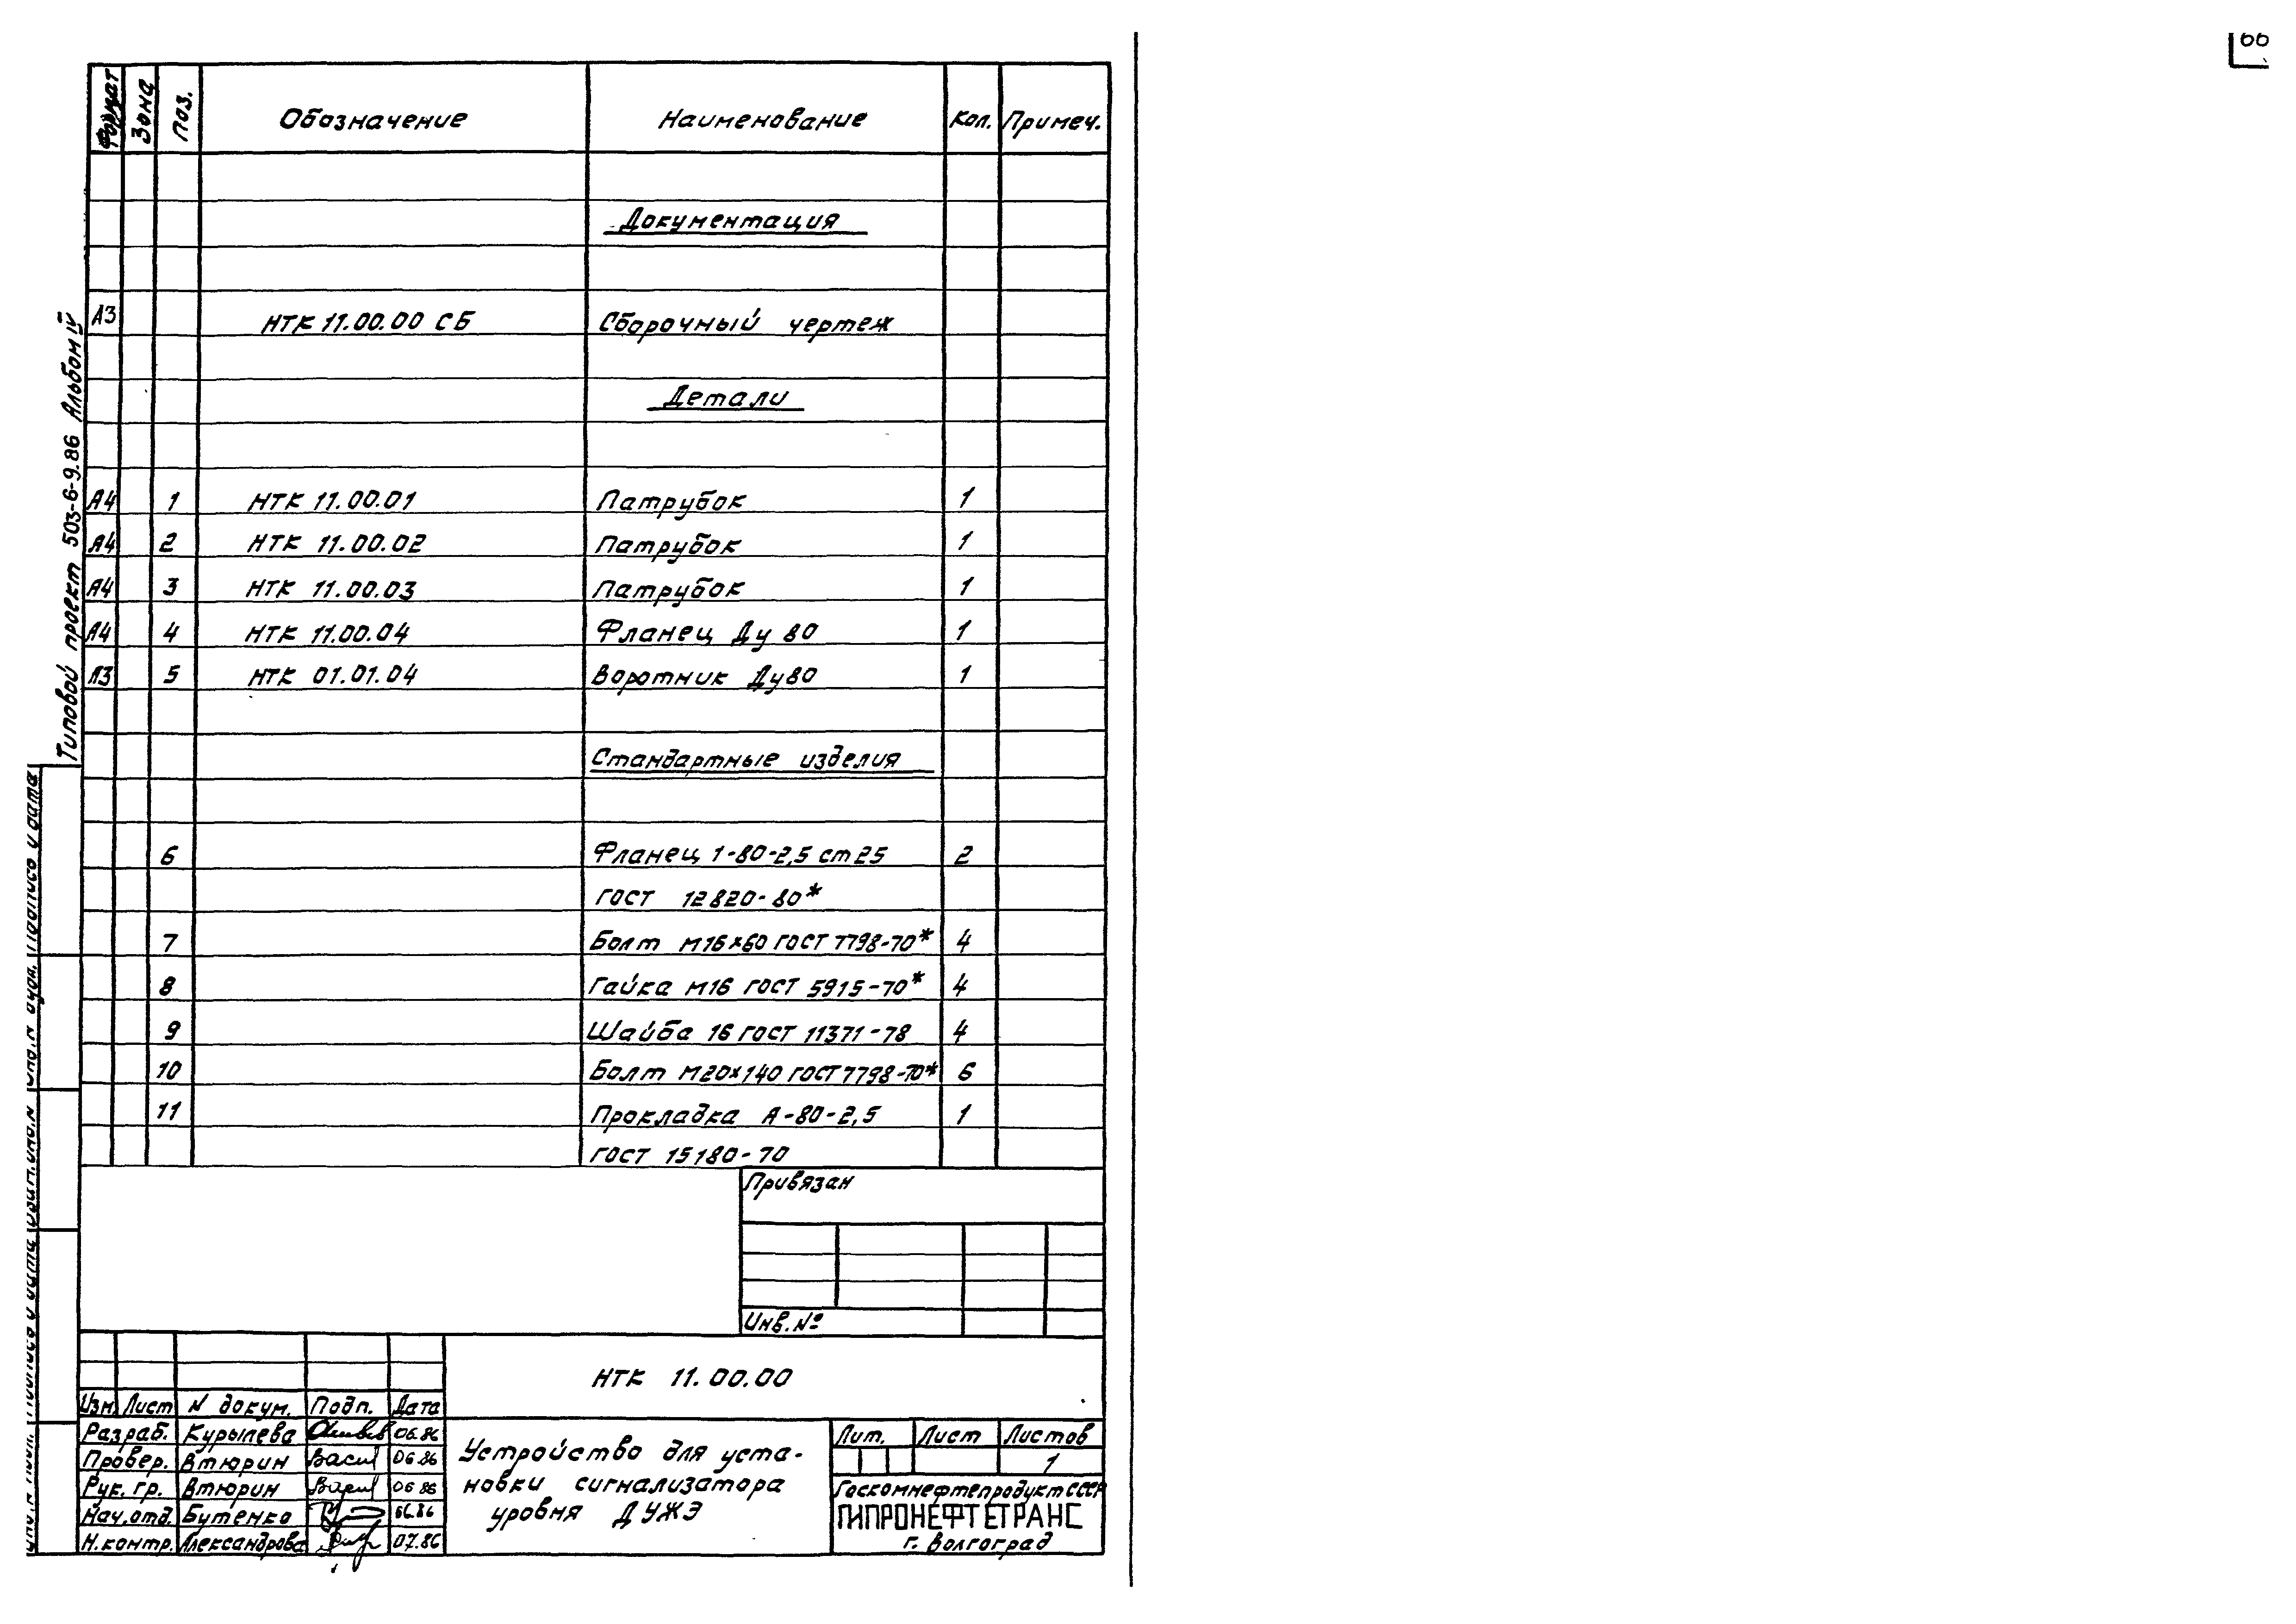 66
Формат Зона Поз. Обозначение Наименование Кол. Примеч.
Документация
А3 НТК 11.00.00 СБ Сборочный чертеж
Детали
А4 1 НТК 11.00.01 Патрубок 1
А4 2 НТК 11.00.02 Патрубок 1
А4 3 НТК 11.00.03 Патрубок 1
А4 4 НТК 11.00.04 Фланец Ду 80 1
А3 5 НТК 01.01.04 Воротник Ду80 1
Стандартные изделия
6 Фланец 1-80-2,5 ст25 2
ГОСТ 12820-80*
7 Болт М16х60 ГОСТ 7798-70* 4
8 Гайка М16 ГОСТ 5915-70* 4
9 Шайба 16 ГОСТ 11371-78 4
10 Болт М20х140 ГОСТ 7798-70* 6
11 Прокладка А-80-2,5 1
ГОСТ 15180-70
Типовой проект 503-6-9.86 Альбом IV
Привязан
Инв. №
НТК 11.00.00
Изм. Лист N докум. Подп. Дата
Разраб. Курылева 06.86
Провер. Втюрин 06.86
Рук. гр. Втюрин 06 86
Нач. отд. Бутенко 06.86
Н. контр. Александрова 07.86
Устройство для уста-
новки сигнализатора
уровня ДУЖЭ
Лит. Лист Листов
1
Госкомнефтепродукт СССР
ГИПРОНЕФТЕТРАНС
г. Волгоград